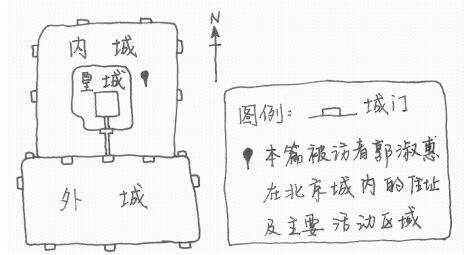 N
内城
皇城
外城
图例： 城门
本篇被访者郭淑惠
在北京城内的住址
及主要活动区域